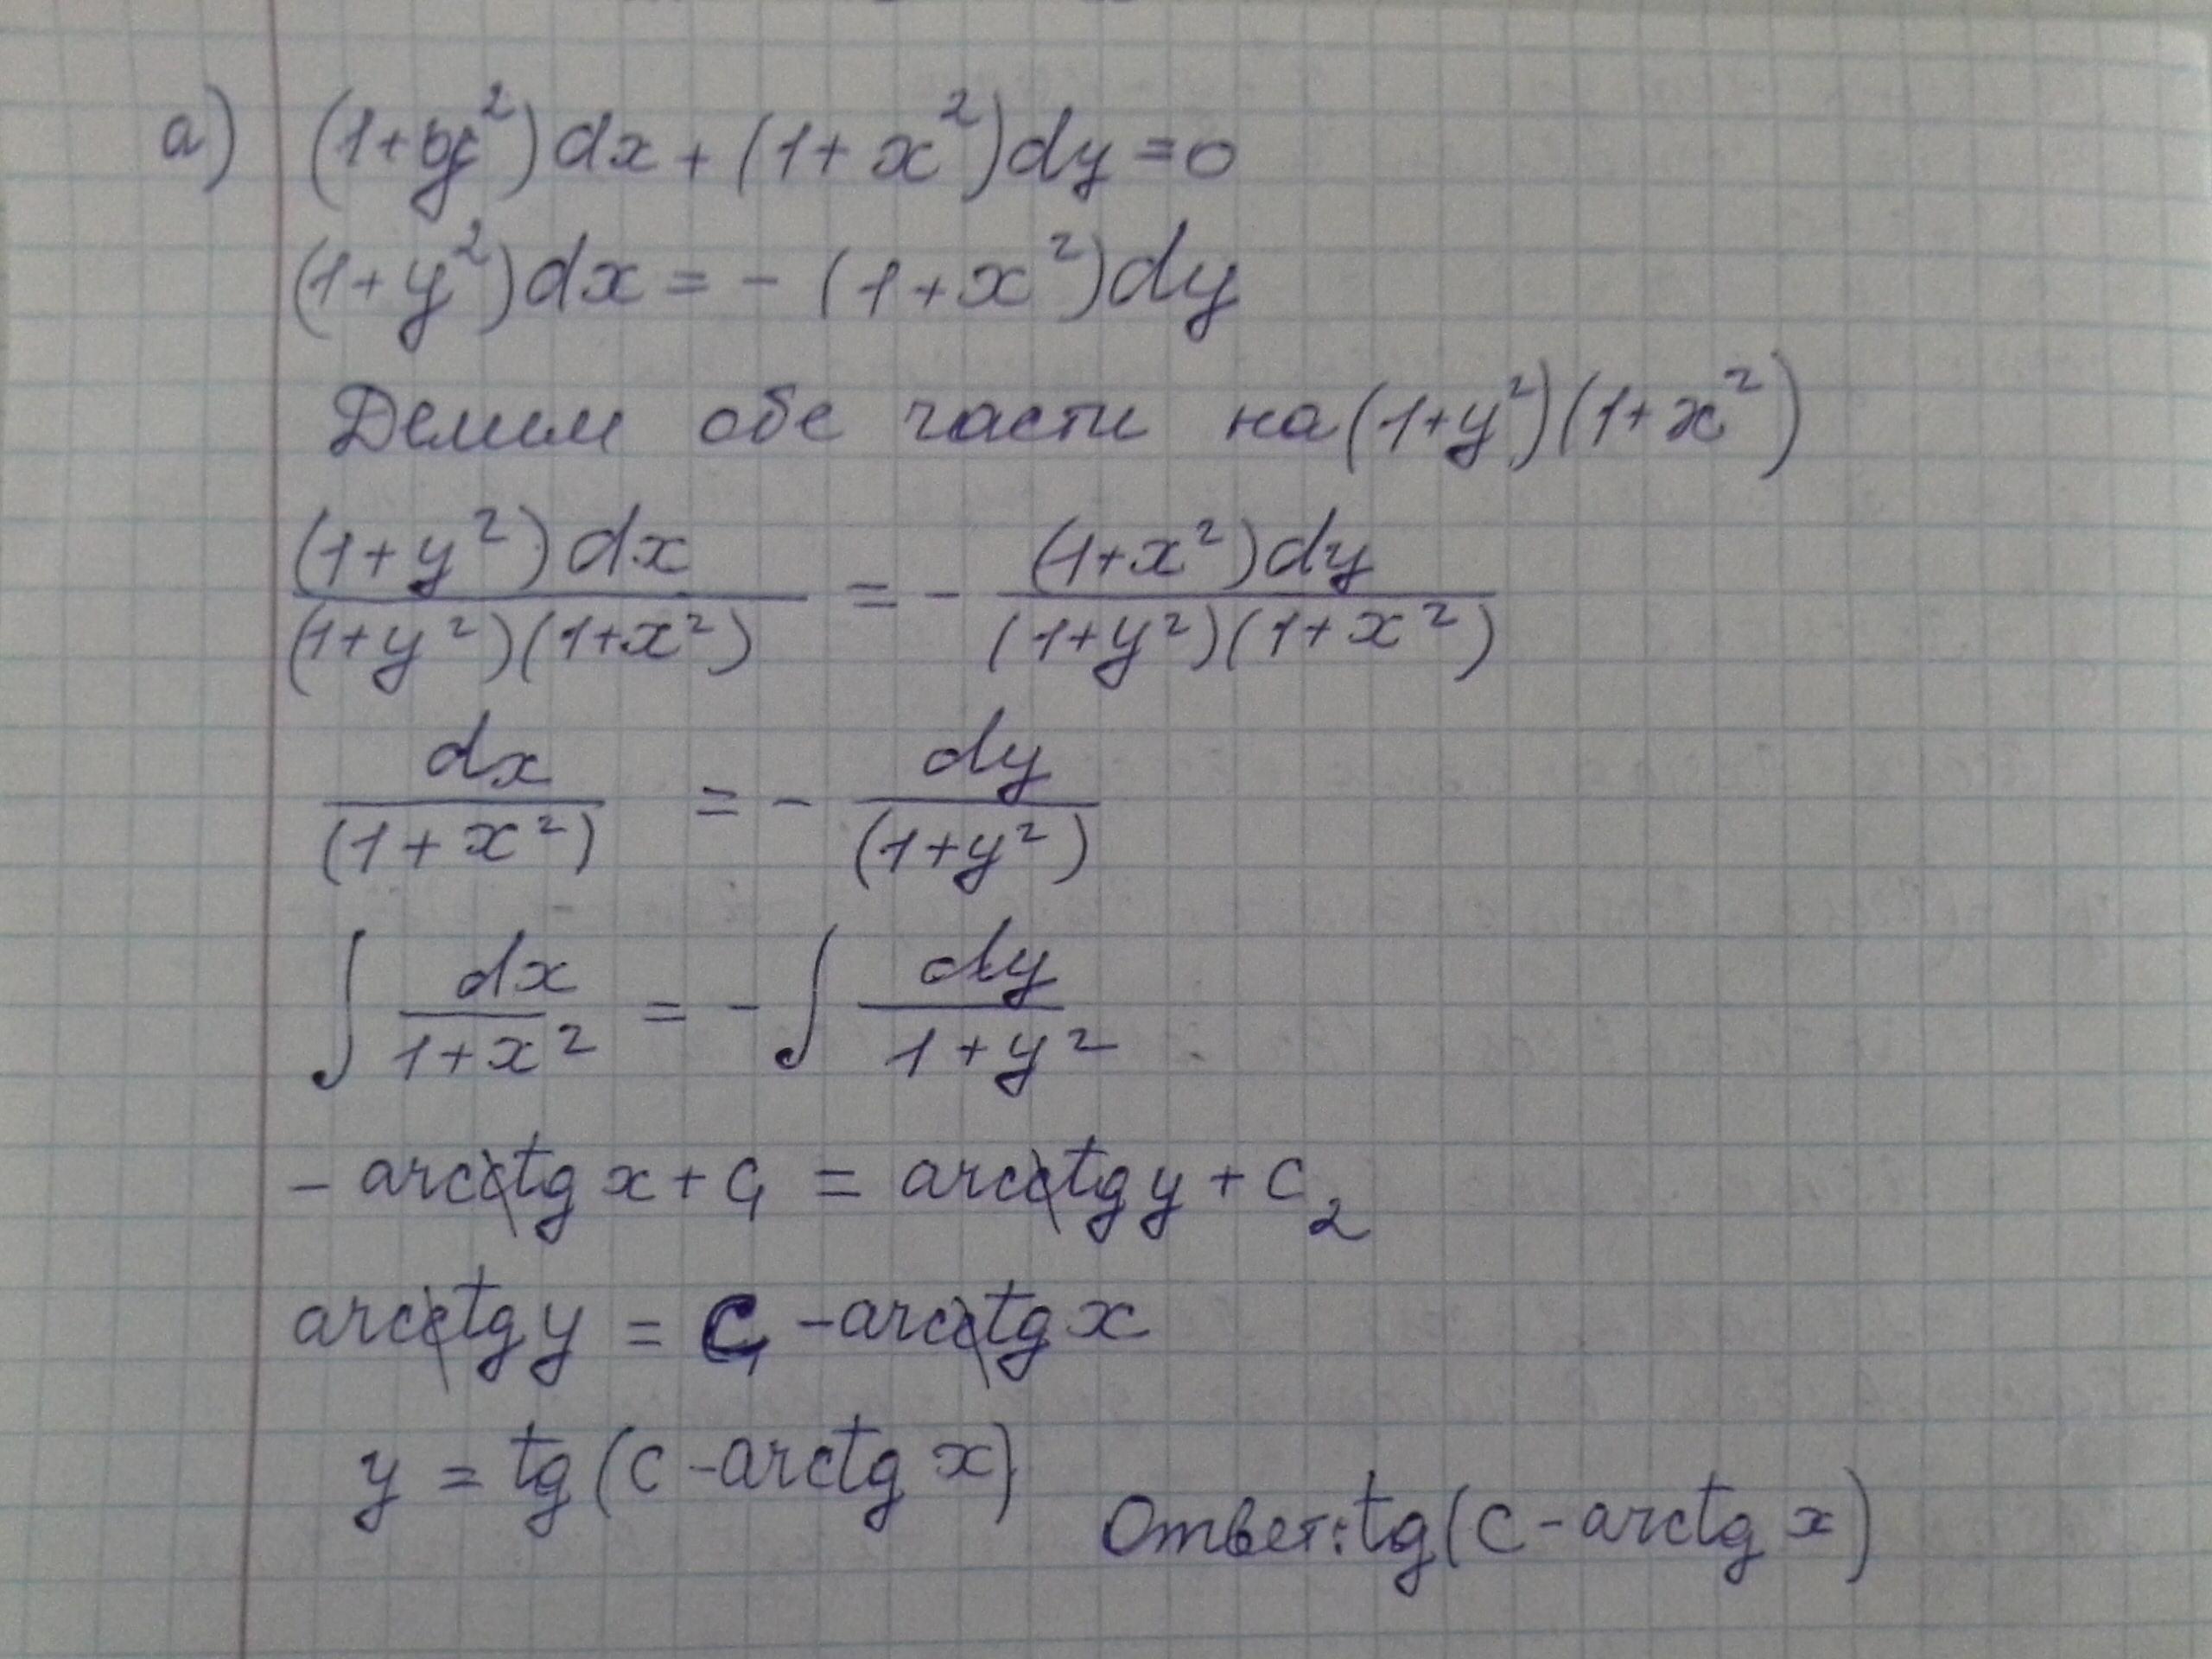 а) (1+y²)dx+(1+x²)dy=0
(1+y²)dx=-(1+x²)dy
Делим обе части на(1+y²)(1+x²)
(1+y²)dx/(1+y²)(1+x²) = - (1+x²)dy/(1+y²)(1+x²)
dx/(1+x²) = - dy/(1+y²)
∫ dx/1+x² = -∫ dy/1+y²
- arctg x + C₁ = arctg y + C₂
arctg y = C₁ - arctg x
y = tg(C - arctg x)
Ответ: tg(C - arctg x)